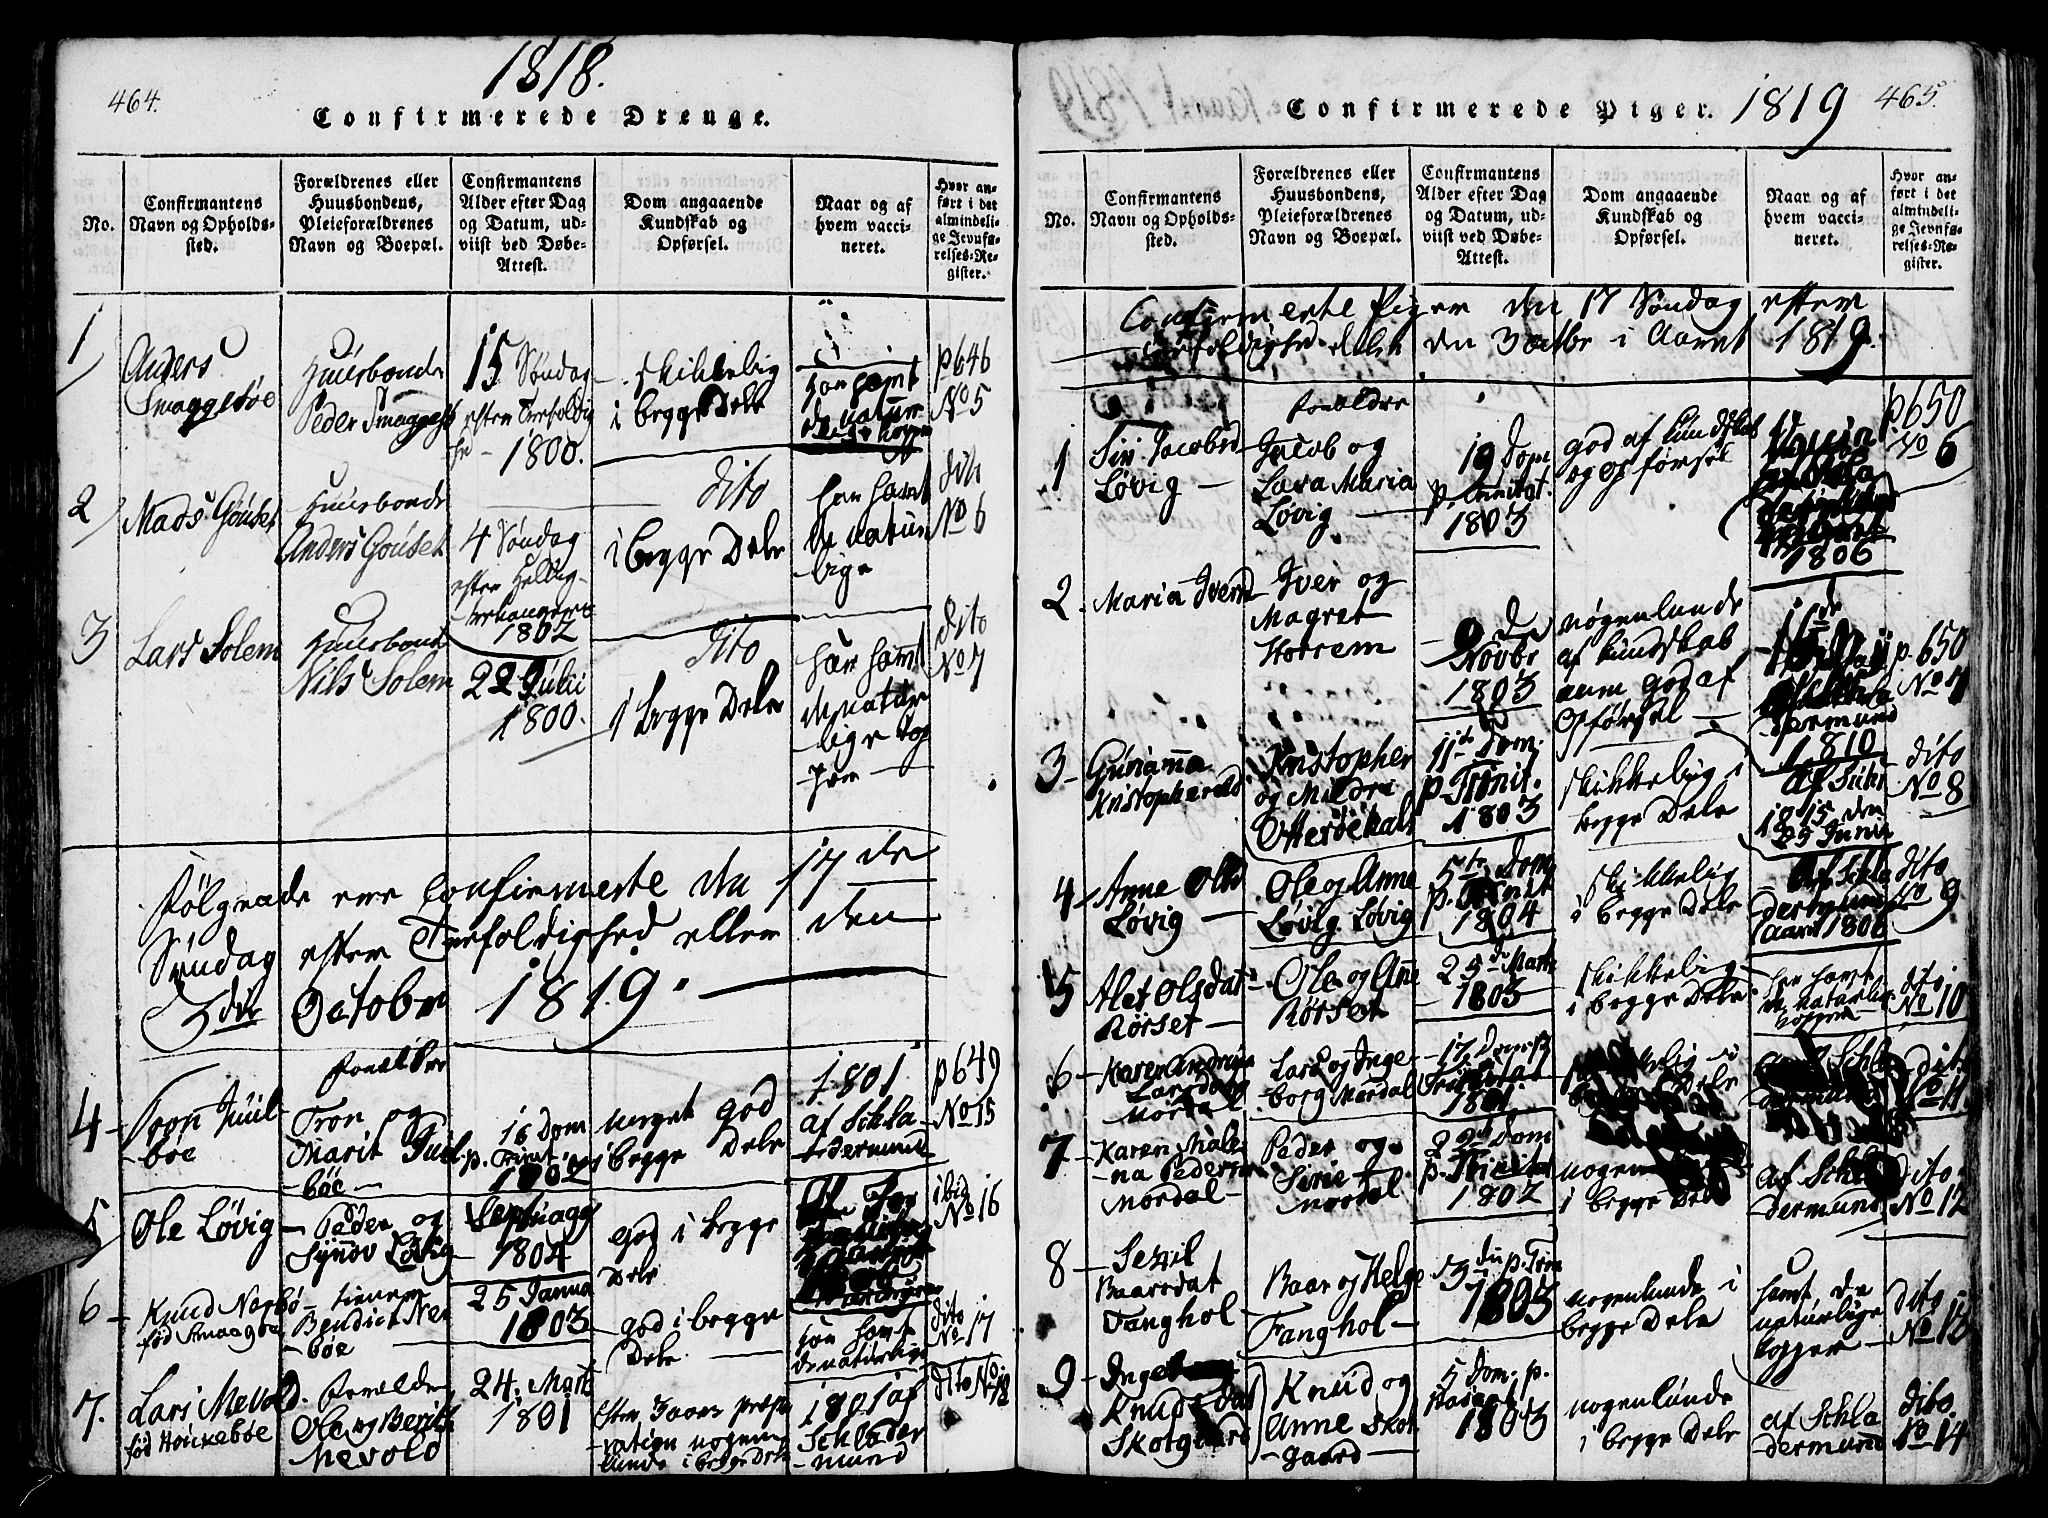 464.
1818.
Confirmerede Drenge.
No.
Confirmantens
Navn og Opholds-
sted.
Forældrenes eller
Huusbondens,
Pleieforældrenes
Navn og Boepæl.
Confirmantens
Alder efter Dag
og Datum, ud-
viist ved Døbe-
Attest.
Dom angaaende
Kundskab og
Opførsel.
Naar og af
hvem vacci-
neret.
Hvor an-
ført i det
almindeli-
ge Jevnfø-
relses-Re-
gister.
1
Anders
Smaggebøe
Huusbonde
Peder
15 Søndag
efter Trefoldig
hed
1800.
skikkelig
i begge Dele
har havt
de natur
p 646
No 5
2
Mads Gouset
Huusbonde
Anders Gouset
4 Søndag
efter Hellig-
trekongers
1802
dito
i begge Dele
har havt
de natur
lige
dito
No 6
3
Lars Solem
Huusbonde
Nils Solem
22 Julii
1800.
dito
i begge Dele
har havt
de natur
lige Cop
per
dito
No 7
Følgende ere Confirmerte den 17 de
Søndag efter Trefoldighed eller den
3die October 1819.
4
Tron Juul-
bøe
Forældre
Tron og
Marit Juul
bøe
16 Dom
p. Trinit
1802
meget god
i begge Dele
1801
af Schla-
dermund
p 649
No 15
5
Ole Løvig
Peder og
Synøv Løvig
Septuag
1804
god i begge
Dele
ibid
No 16
6
Knud Nerbø
fød Smaagøe
tiener
Bendict Ner
bøe
25 Janua
1803
god i begge
Dele
har havt
de naturlige
dito
No 17
7.
Lars Mevold
fød Houkebøe
Forældre
Ole og Berith
Mevold
24. Mart
1801
Efter 3 Aars præpa
ration nogen
lunde i begge Dele
1801 af
Schlader
mund
dito No 18
465.
Confirmerede Piger. 1819
No.
Confirmantens
Navn og Opholds-
sted.
Forældrenes eller
Huusbondens,
Pleieforældrenes
Navn og Boepæl.
Confirmantens
Alder efter Dag
og Datum, ud-
viist ved Døbe-
Attest.
Dom angaaende
Kundskab og
Opførsel.
Naar og af
hvem vacci-
neret.
Hvor an-
ført i det
almindeli-
ge Jevnfø-
relses-Re-
gister.
Confirmerte Piger den 17 Søndag efter
Trefoldighed den 3 Octbr i Aaret 1819.
1
Siri Jacobsd
Løvig
Forældre
Jacob og
Lava Maria
Løvig
19 Dom
p. Trinitat.
1803
god af Kundskab
og opførsel
1806
p 650
No 6
2.
Maria Iversd
Iver og
Magret
Horrem
9 d
Novbr
1803
nogenlunde
af Kundskab
men god af
Opførsel
dermund
1810
p. 650
No 7
3
Gunamma
Kristophersd
Kristopher
og Mildri
Otterdekals
11te Dom.
p. Trinit.
1803
skikkelig i
begge Dele
1815 den
25 Junii
dito
No 8
4
Anne Olsd
Løvig
Ole og Anne
Løvig Løvig
5te Dom
p. Trinit
1804
skikkelig
i begge Dele
af Schla
dermund
Aaret
dito
No 9
5
Alet Olsdat
Rørset
Ole og Anne
Rørset
25de Marts
1803
skikkelig
i begge Dele
har havt
de naturlige
Kopper
dito
No 10
6
Karen Andrine
Larsdatt
Mordal
Lars og Inge-
borg Mordal
17 Dom p
1801.
i
begge Dele
Schla
dermund
dito
No 11
7
Karen Male
na Pedersd
Mordal
Peder og
Sirie
Mordal
22de Dom
p. Trinitat
1802
nogen
i begge Dele
af Schla
dermund
dito
No 12
8
Sezil
Baarsdat
Fanghol
Baar og Helge
Fanghol
3die p. Trin
1803
nogenlunde i
begge Dele
havt de
naturlige
kopper
dito
No 13
9
Ingeborg
Knudsdat
Skotgaard
Knud og
Anne Skot
gaard
5 Dom. p.
Pascat
1803
nogenlunde
i begge Dele
af Schla
dermund
dito
No 14